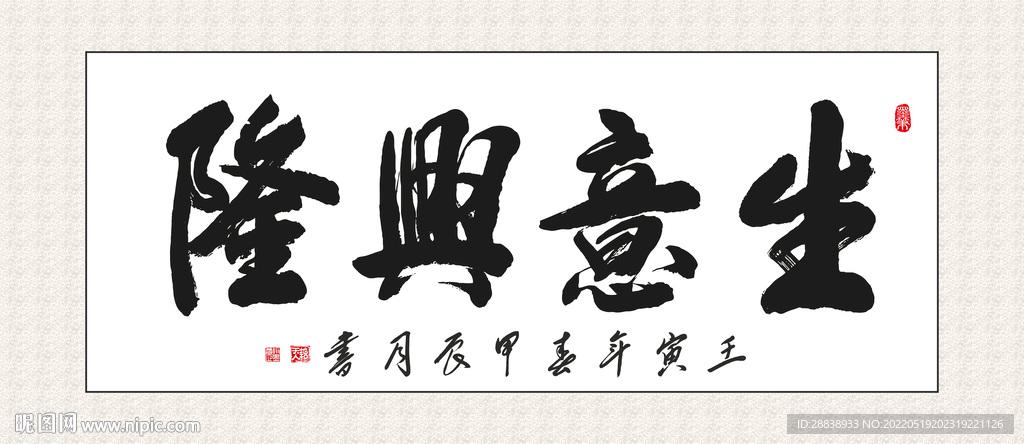 生意興隆
壬寅年春甲辰月書
昵图网 www.nipic.com
ID:28838933 NO:20220519202319221126